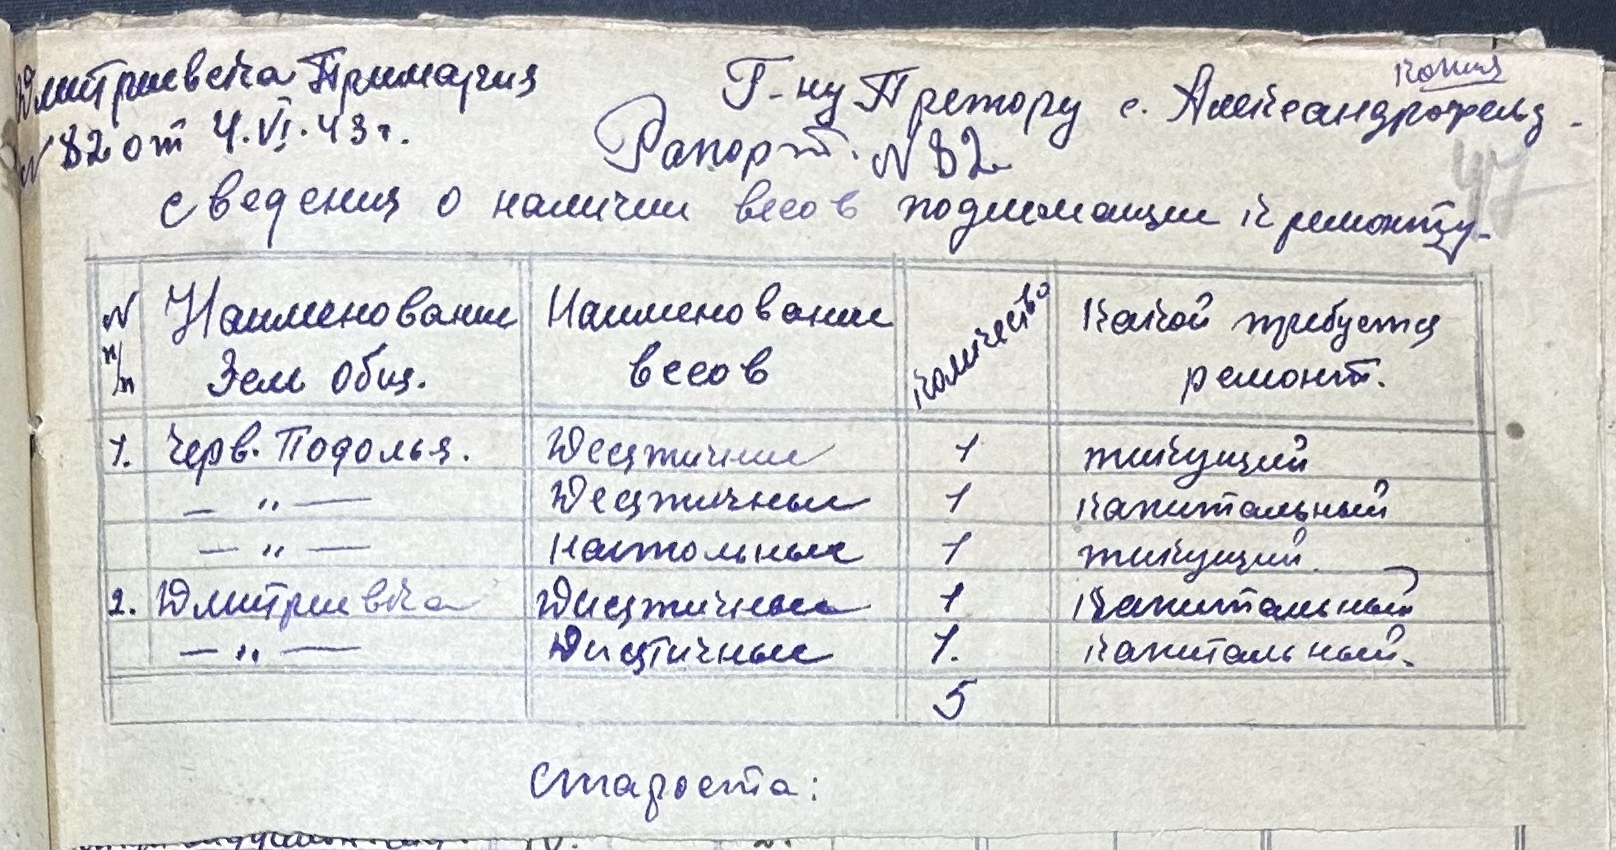 копия
Дмитриевска Примария
N 82 от 4.VI.43 г.
Г-ну Претору с. Александрофельд.
47
Рапорт. N 82
сведения о наличии весов подлежащие к ремонту.
N п/п
Наименование Зем общ.
Наименование весов
Количество
Какой требуется ремонт.
1. Черв. Подолья. Десятични 1 тикущий
— „ — Десятичные 1 капитальный
— „ — Настольные 1 тикущий.
2. Дмитриевка Дисятичные 1 Капитальный
— „ — Дисятичные 1. капитальный.
5
Староста: